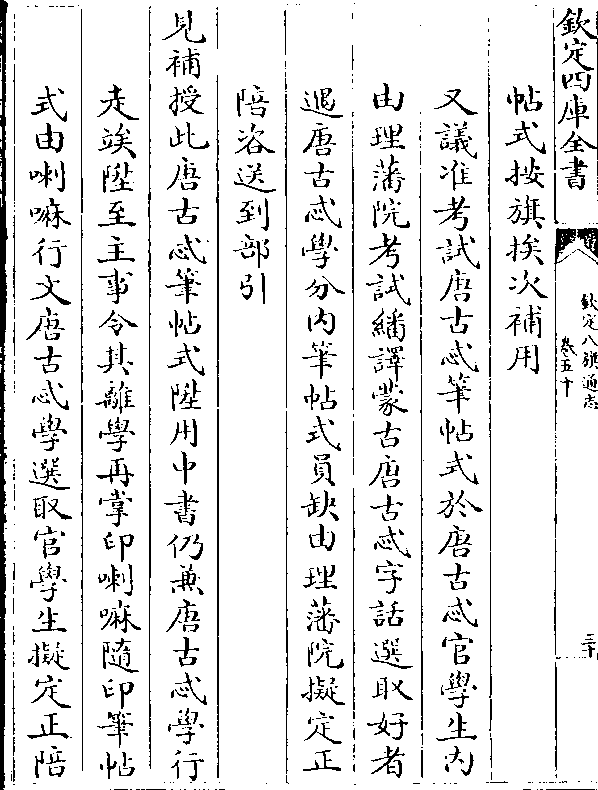 欽定四庫全書
欽定八旗通志
卷五十
三十
帖式按旗挨次補用
又議准考試唐古忒筆帖式於唐古忒官學生内
由理藩院考試繙譯蒙古唐古忒字話選取好者
遇唐古忒學分内筆帖式員缺由理藩院擬定正
陪咨送到部引
見補授此唐古忒筆帖式陞用中書仍兼唐古忒學行
走竢陞至主事令其離學再掌印喇嘛隨印筆帖
式由喇嘛行文唐古忒學選取官學生擬定正陪